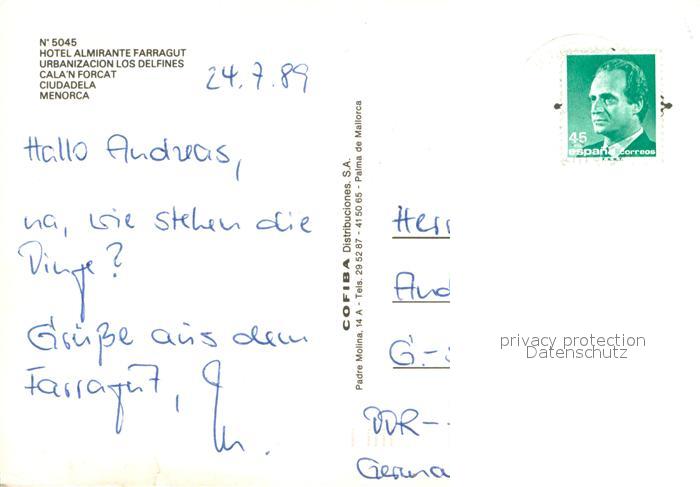 N° 5045
HOTEL ALMIRANTE FARRAGUT
URBANIZACION LOS DELFINES
CALA'N FORCAT
CIUDADELA
MENORCA
24.7.89
Hallo Andreas,
na, wie stehen die
Dinge?
Grüße aus dem
Farragut,
COFIBA Distribuciones, S.A.
Padre Molina, 14 A - Tels. 29 52 87 - 41 50 65 - Palma de Mallorca
45
españa correos
Herr
And
G.-
DDR-
Germa
privacy protection
Datenschutz